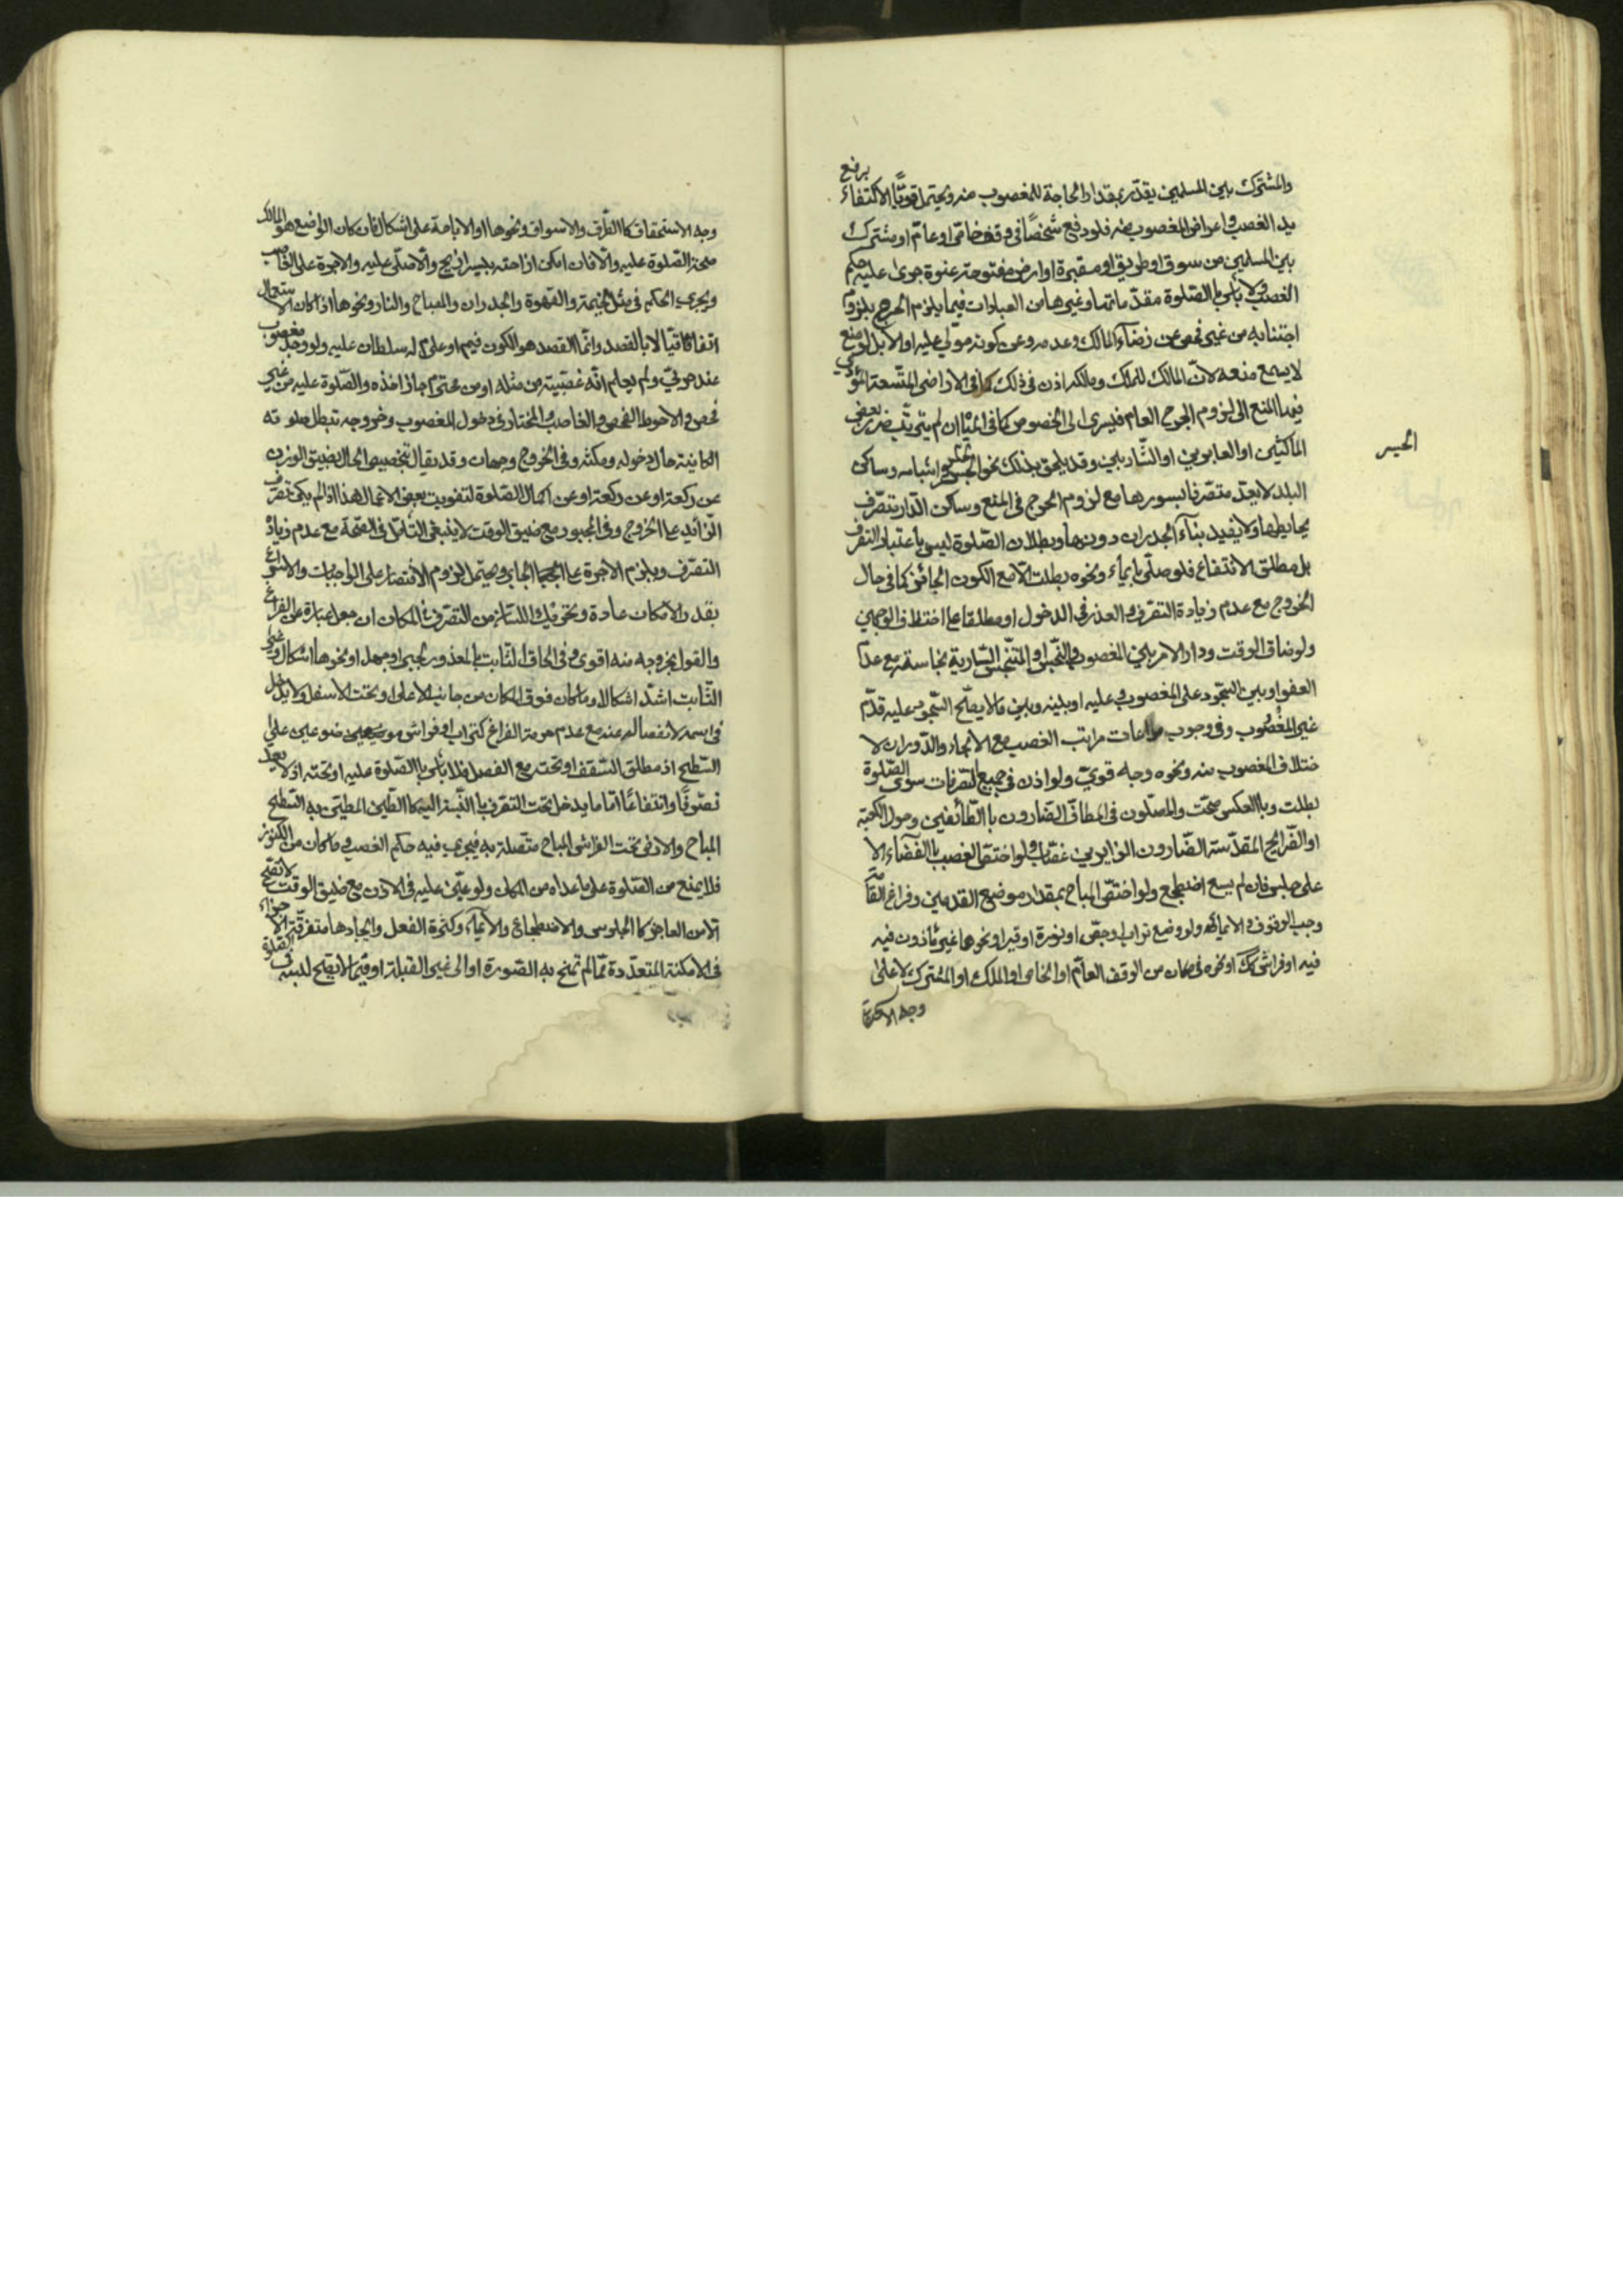 والمشترك بين المسلمين يقدّر بمقدار الحاجة للمغصوب منه ويحتمل قويّا الاكتفاء برفع
يد الغصب واعراض المغصوب منه فلو دفع شخصًا في وقف خاصّ او عامّ او مشترك
بين المسلمين من سوق او طريق او مقبرة او ارض مفتوحة عنوة جرى عليه حكم
الغصب ولا بأس بالصّلوة مقدّماتها وغيرها من العبادات فيما يلزم الحرج بلزوم
اجتنابه من غير فحص عن رضاء المالك وعدمه وعن كونه مولّى عليه او لا بل لو منع
لا يسمع منعه لانّ المالك للملك ومالكه اذن في ذلك كما في الاراضي المتّسعة المؤدّي
فيها المنع الى لزوم الحرج العام فيسرى الى الخصوص كما في المياه ان لم يترتّب ضرر بعض
الماكثين او العابرين او الشّاربين وقد يلحق بذلك نحو الجسر واشباهه وساكن
الحيسر
البلد لا يعدّ متصرّفا بسورها مع لزوم الحرج في المنع وساكن الدّار متصرّف
بحايطها ولا يفيد بناء الجدران دونها وبطلان الصّلوة ليس باعتبار التصرّف
بل مطلق الانتفاع فلو صلّى بايماء ونحوه بطلت الّا مع الكون الجائز كما في حال
الخروج مع عدم زيادة التصرّف والعذر في الدخول او مطلقا على اختلاف الوجهين
ولو ضاق الوقت ودار الامر بين المغصوب والنّجس او المتنجّس السّارية نجاسته مع عدم
العفو او بين السّجود على المغصوب عليه او بينه وبين ما لا يصحّ السّجود عليه قدّم
غير المغصوب وفي وجوب مراعات مراتب الغصب مع الانجاد والدّوران لا
ختلاف المغصوب منه ونحوه وجه قويّ ولو اذن في جميع التصرّفات سوى الصّلوة
بطلت وبالعكس صحّت والمصلّون في المطاف الضارون بالطّائفين وحول الكعبة
او الضّرايح المقدّسة الضّارون الزايرين غصّاب ولو اختصّ الغصب بالفضاء الا
على جلس فان لم يسع اضطجع ولو اختصّ المباح بمقدار موضع القدمين وفراغ القامة
وجب الوقوف والايماء له ولو وضع تراب او جصّ او نورة او قير او نحوها غير مأذون فيه
فيه او فراش كك او نحوه في مكان من الوقف العامّ او الخاص او الملك او المشترك لا على
وجه الاستحقاق
وجه الاستحقاق كالطّرق والاسواق ونحوها او الاباحة على اشكال فان كان الواضع هو المالك
صحّة الصّلوة عليه والّا فان امكن ازاحته بيسر ازيح والّا صلّى عليه والاجرة على الغاصب
ويجري الحكم في مثل الخيمة والقهوة والجدران والمصباح والنار ونحوها اذا كان الاستعمال
اتفاقاتيّا لا بالقصد وانّما القصد هو الكون فيهم او على له سلطان عليه ولو وجد مغصوب
عند حربيّ ولم يعلم انّه غصبيته من مثله او من محترم جاز اخذه والصّلوة عليه من غير
فحص والاحوط الفحص والغاصب والمختار في دخول المغصوب وخروجه تبطل صلوته
الكاينة حال دخوله ومكثه وفي الخروج وجهان وقد يقال بتخصيص الحال بضيق الوزن
عن ركعة او عن ركعة او عن اكمال الصّلوة لتفويت بعض الاعمال هذا اذا لم يكن تصرّف
الزّائد على الخروج وفي المجبور مع ضيق الوقت لا ينبغي التأمّل في الصّحة مع عدم زيادة
التصرّف ويلزم الاجرة على الجابر ويحتمل لزوم الاقتصار على الواجبات والاسراع
بقدر الامكان عادة وتحريك اللسان من التصرّف في المكان ان جعل عبارة عن الفراغ
والقول بخروجه منه اقوى وفي الحاق الثّابت بالمعذور بجبر او جهل او نحوها اشكال وغير
الثّابت اشدّ اشكالا وما كان فوق المكان من جانب الاعلى او تحت الاسفل ولا يدخل
في اسمه لانفصاله عنه مع عدم حرمة الفراغ كتراب او فراش موضوعين على
السّطح اذ مطلق السّقف او تحته مع الفصل فلا بأس بالصّلوة عليه او تحته اذ لا يعدّ
تصرّفًا وانتفاعًا امّا ما يدخل تحت التصرّف بالنّسبة اليه كالطّين المطيّن به السّطح
المباح والارض تحت الفراش المباح متّصلة به فيجري فيه حكم الغصب وما كان من الكنوز
فلا يمنع من الصّلوة على ما عداه من المكان ولو عيّن عليه في الاذن مع ضيق الوقت لا تصحّ
الّا من العاجز كالجلوس والاضطجاع والايماء وكثرة الفعل وايجادها متفرّقة الاجزاء
في الامكنة المتعدّدة ممّا لم تمنح به الصّورة او الى غير القبلة او فيما لا يصحّ لبسه في الصّلوة